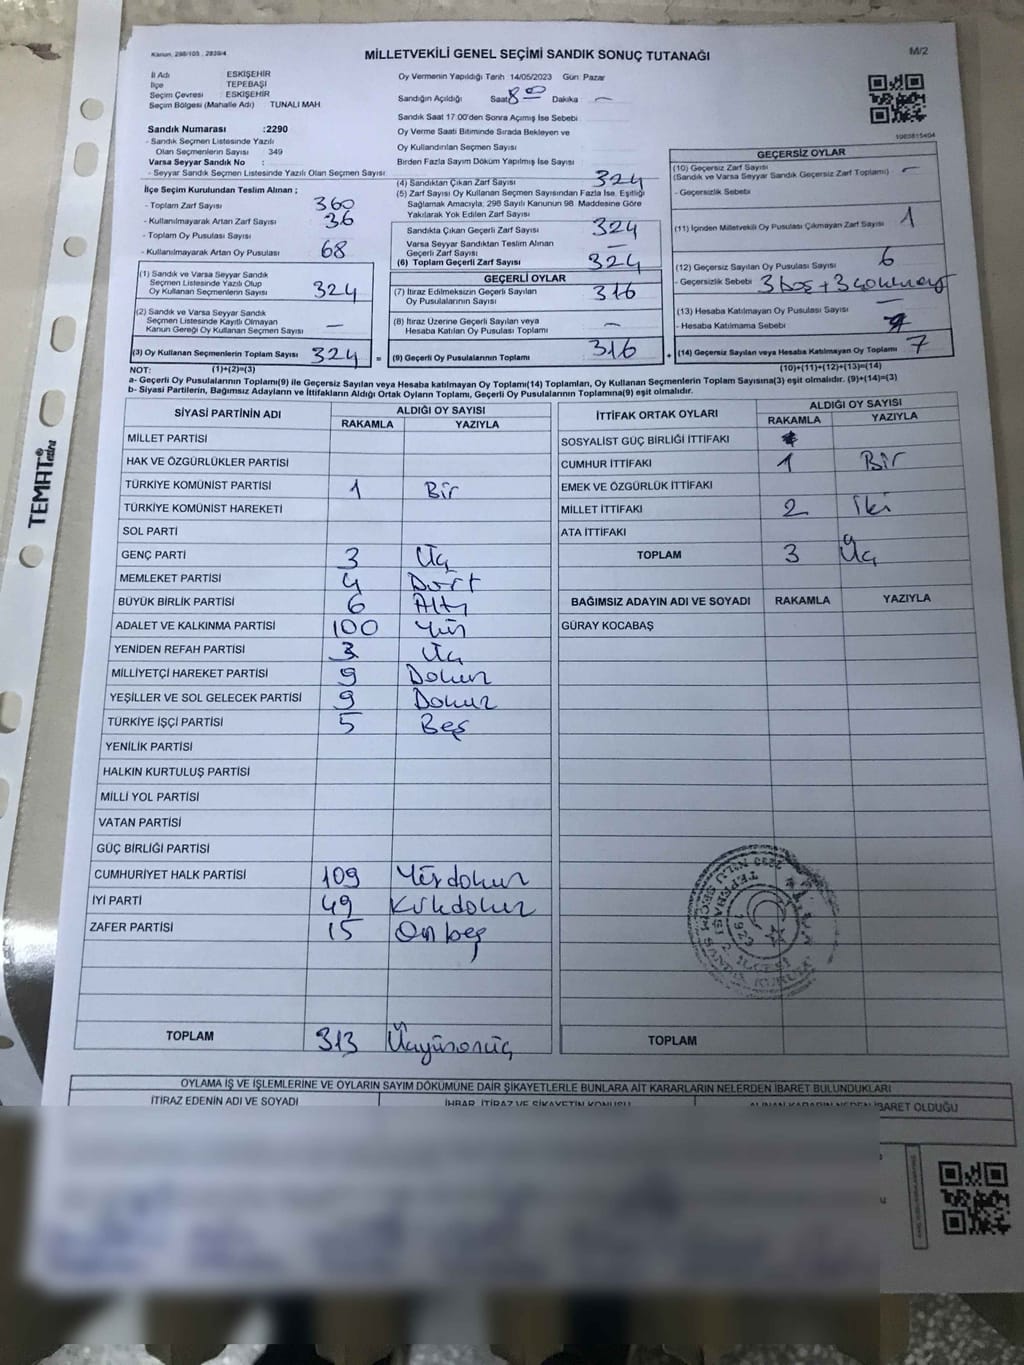 Kanun, 298/105 , 2839/4
MİLLETVEKİLİ GENEL SEÇİMİ SANDIK SONUÇ TUTANAĞI
M/2
İl Adı ESKİŞEHİR
İlçe TEPEBAŞI
Seçim Çevresi ESKİŞEHİR
Seçim Bölgesi (Mahalle Adı) TUNALI MAH
Sandık Numarası :2290
- Sandık Seçmen Listesinde Yazılı
Olan Seçmenlerin Sayısı : 349
Varsa Seyyar Sandık No :
- Seyyar Sandık Seçmen Listesinde Yazılı Olan Seçmen Sayısı :
İlçe Seçim Kurulundan Teslim Alınan ;
- Toplam Zarf Sayısı 360
- Kullanılmayarak Artan Zarf Sayısı 36
- Toplam Oy Pusulası Sayısı
- Kullanılmayarak Artan Oy Pusulası 68
(1) Sandık ve Varsa Seyyar Sandık
Seçmen Listesinde Yazılı Olup
Oy Kullanan Seçmenlerin Sayısı 324
(2) Sandık ve Varsa Seyyar Sandık
Seçmen Listesinde Kayıtlı Olmayan
Kanun Gereği Oy Kullanan Seçmen Sayısı —
(3) Oy Kullanan Seçmenlerin Toplam Sayısı 324 =
Oy Vermenin Yapıldığı Tarih 14/05/2023 Gün Pazar
Sandığın Açıldığı Saat 8 00 Dakika —
Sandık Saat 17.00'den Sonra Açılmış İse Sebebi
Oy Verme Saati Bitiminde Sırada Bekleyen ve
Oy Kullandırılan Seçmen Sayısı
Birden Fazla Sayım Döküm Yapılmış İse Sayısı
(4) Sandıktan Çıkan Zarf Sayısı 324
(5) Zarf Sayısı Oy Kullanan Seçmen Sayısından Fazla İse, Eşitliği
Sağlamak Amacıyla; 298 Sayılı Kanunun 98. Maddesine Göre
Yakılarak Yok Edilen Zarf Sayısı
Sandıkta Çıkan Geçerli Zarf Sayısı 324
Varsa Seyyar Sandıktan Teslim Alınan
Geçerli Zarf Sayısı —
(6) Toplam Geçerli Zarf Sayısı 324
GEÇERLİ OYLAR
(7) İtiraz Edilmeksizin Geçerli Sayılan
Oy Pusulalarının Sayısı 316
(8) İtiraz Üzerine Geçerli Sayılan veya
Hesaba Katılan Oy Pusulası Toplamı —
(9) Geçerli Oy Pusulalarının Toplamı 316 +
1060815404
GEÇERSİZ OYLAR
(10) Geçersiz Zarf Sayısı
(Sandık ve Varsa Seyyar Sandık Geçersiz Zarf Toplamı) —
- Geçersizlik Sebebi
(11) İçinden Milletvekili Oy Pusulası Çıkmayan Zarf Sayısı 1
(12) Geçersiz Sayılan Oy Pusulası Sayısı 6
- Geçersizlik Sebebi 3 boş + 3
(13) Hesaba Katılmayan Oy Pusulası Sayısı —
- Hesaba Katılmama Sebebi
(14) Geçersiz Sayılan veya Hesaba Katılmayan Oy Toplamı 7
NOT: (1)+(2)=(3) (10)+(11)+(12)+(13)=(14)
a- Geçerli Oy Pusulalarının Toplamı(9) ile Geçersiz Sayılan veya Hesaba katılmayan Oy Toplamı(14) Toplamları, Oy Kullanan Seçmenlerin Toplam Sayısına(3) eşit olmalıdır. (9)+(14)=(3)
b- Siyasi Partilerin, Bağımsız Adayların ve İttifakların Aldığı Ortak Oyların Toplamı, Geçerli Oy Pusulalarının Toplamına(9) eşit olmalıdır.
SİYASİ PARTİNİN ADI ALDIĞI OY SAYISI
RAKAMLA YAZIYLA
MİLLET PARTİSİ
HAK VE ÖZGÜRLÜKLER PARTİSİ
TÜRKİYE KOMÜNİST PARTİSİ 1 Bir
TÜRKİYE KOMÜNİST HAREKETİ
SOL PARTİ
GENÇ PARTİ 3 Üç
MEMLEKET PARTİSİ 4 Dört
BÜYÜK BİRLİK PARTİSİ 6 Altı
ADALET VE KALKINMA PARTİSİ 100 Yüz
YENİDEN REFAH PARTİSİ 3 Üç
MİLLİYETÇİ HAREKET PARTİSİ 9 Dokuz
YEŞİLLER VE SOL GELECEK PARTİSİ 9 Dokuz
TÜRKİYE İŞÇİ PARTİSİ 5 Beş
YENİLİK PARTİSİ
HALKIN KURTULUŞ PARTİSİ
MİLLİ YOL PARTİSİ
VATAN PARTİSİ
GÜÇ BİRLİĞİ PARTİSİ
CUMHURİYET HALK PARTİSİ 109 Yüzdokuz
İYİ PARTİ 49 Kırkdokuz
ZAFER PARTİSİ 15 Onbeş
TOPLAM 313 Üçyüzonüç
İTTİFAK ORTAK OYLARI ALDIĞI OY SAYISI
RAKAMLA YAZIYLA
SOSYALİST GÜÇ BİRLİĞİ İTTİFAKI
CUMHUR İTTİFAKI 1 Bir
EMEK VE ÖZGÜRLÜK İTTİFAKI
MİLLET İTTİFAKI 2 İki
ATA İTTİFAKI
TOPLAM 3 Üç
BAĞIMSIZ ADAYIN ADI VE SOYADI RAKAMLA YAZIYLA
GÜRAY KOCABAŞ
TOPLAM
OYLAMA İŞ VE İŞLEMLERİNE VE OYLARIN SAYIM DÖKÜMÜNE DAİR ŞİKAYETLERLE BUNLARA AİT KARARLARIN NELERDEN İBARET BULUNDUKLARI
İTİRAZ EDENİN ADI VE SOYADI İHBAR, İTİRAZ VE ŞİKAYETİN KONUSU ALINAN KARARIN NEDEN İBARET OLDUĞU
TEMAT extra